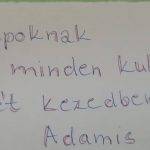 poknak
minden kul
t kezedben
Adamis